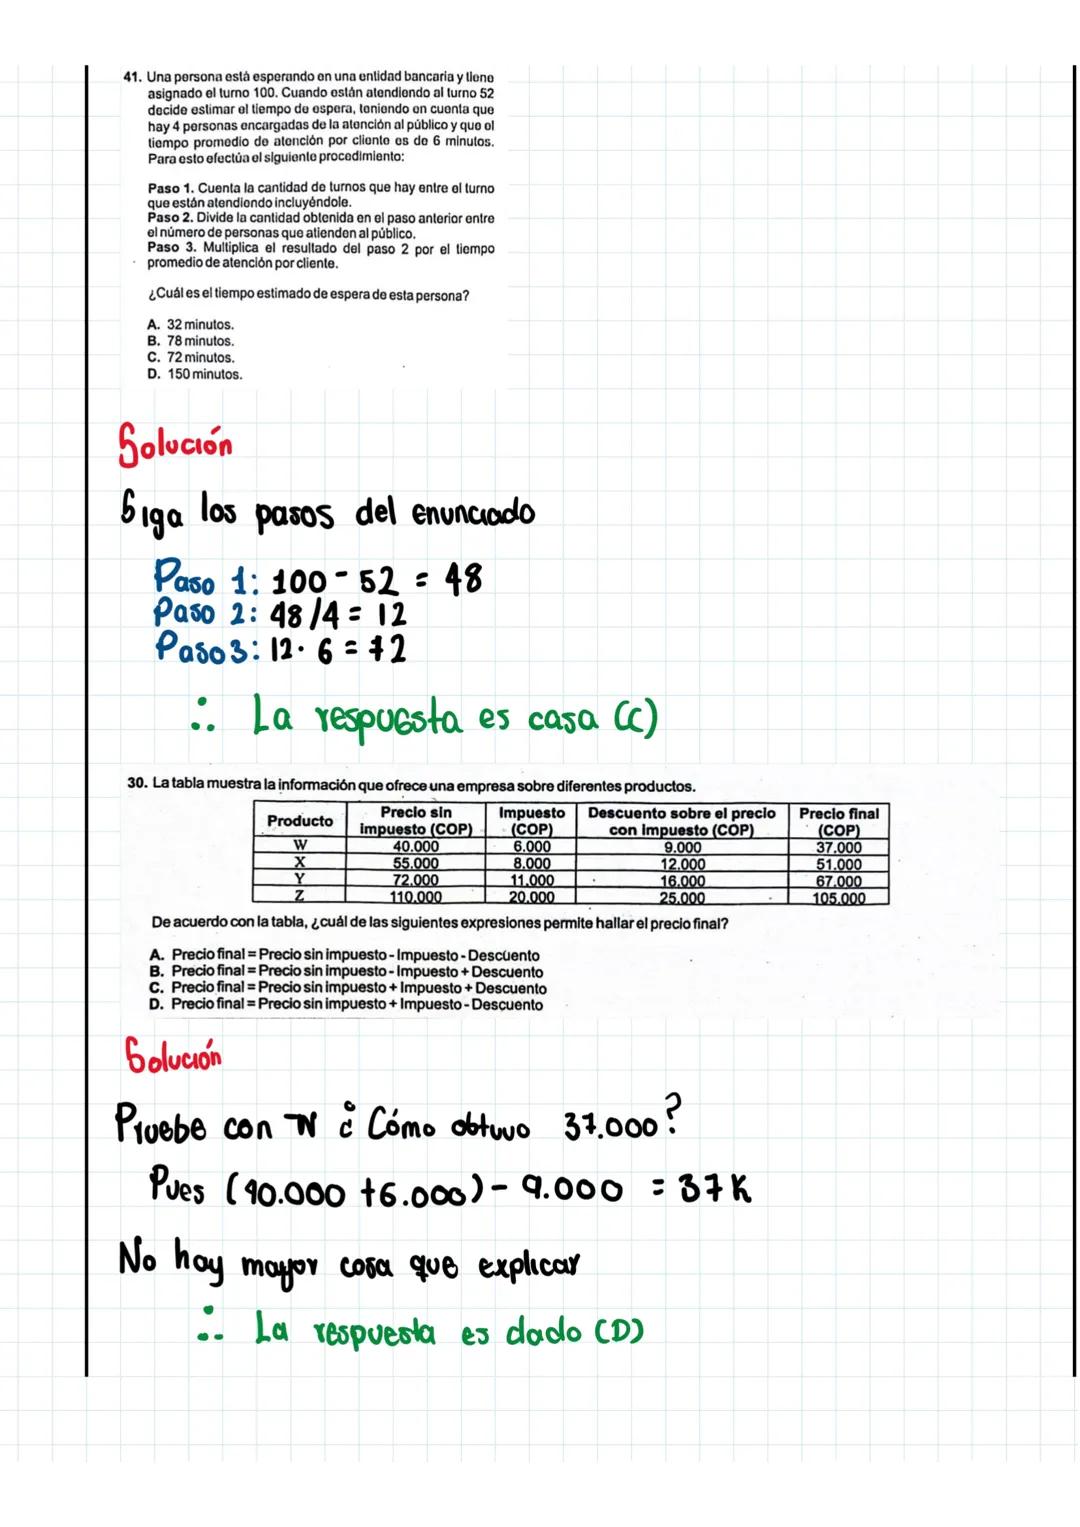 41. Una persona está esperando en una entidad bancaria y tiene
asignado el turno 100. Cuando están atendiendo al turno 52
decide estimar el tiempo de espera, teniendo en cuenta que
hay 4 personas encargadas de la atención al público y que el
tiempo promedio de atención por cliente es de 6 minutos.
Para esto efectúa el siguiente procedimiento:
Paso 1. Cuenta la cantidad de turnos que hay entre el turno
que están atendiendo incluyéndole.
Paso 2. Divide la cantidad obtenida en el paso anterior entre
el número de personas que atienden al público.
Paso 3. Multiplica el resultado del paso 2 por el tiempo
promedio de atención por cliente.
¿Cuál es el tiempo estimado de espera de esta persona?
A. 32 minutos.
B. 78 minutos.
C. 72 minutos.
D. 150 minutos.
Solución
Siga los pasos del enunciado
Paso 1: 100 - 52 = 48
Paso 2: 48/4 = 12
Paso 3: 12 · 6 = 72
∴ La respuesta es casa (C)
30. La tabla muestra la información que ofrece una empresa sobre diferentes productos.
Producto Precio sin impuesto (COP) Impuesto (COP) Descuento sobre el precio con impuesto (COP) Precio final (COP)
W 40.000 6.000 9.000 37.000
X 55.000 8.000 12.000 51.000
Y 72.000 11.000 16.000 67.000
Z 110.000 20.000 25.000 105.000
De acuerdo con la tabla, ¿cuál de las siguientes expresiones permite hallar el precio final?
A. Precio final = Precio sin impuesto - Impuesto - Descuento
B. Precio final = Precio sin impuesto - Impuesto + Descuento
C. Precio final = Precio sin impuesto + Impuesto + Descuento
D. Precio final = Precio sin impuesto + Impuesto - Descuento
Solución
Pruebe con W ¿Cómo obtuvo 37.000?
Pues (40.000 +6.000) - 9.000 = 37K
No hay mayor cosa que explicar
∴ La respuesta es dado (D)